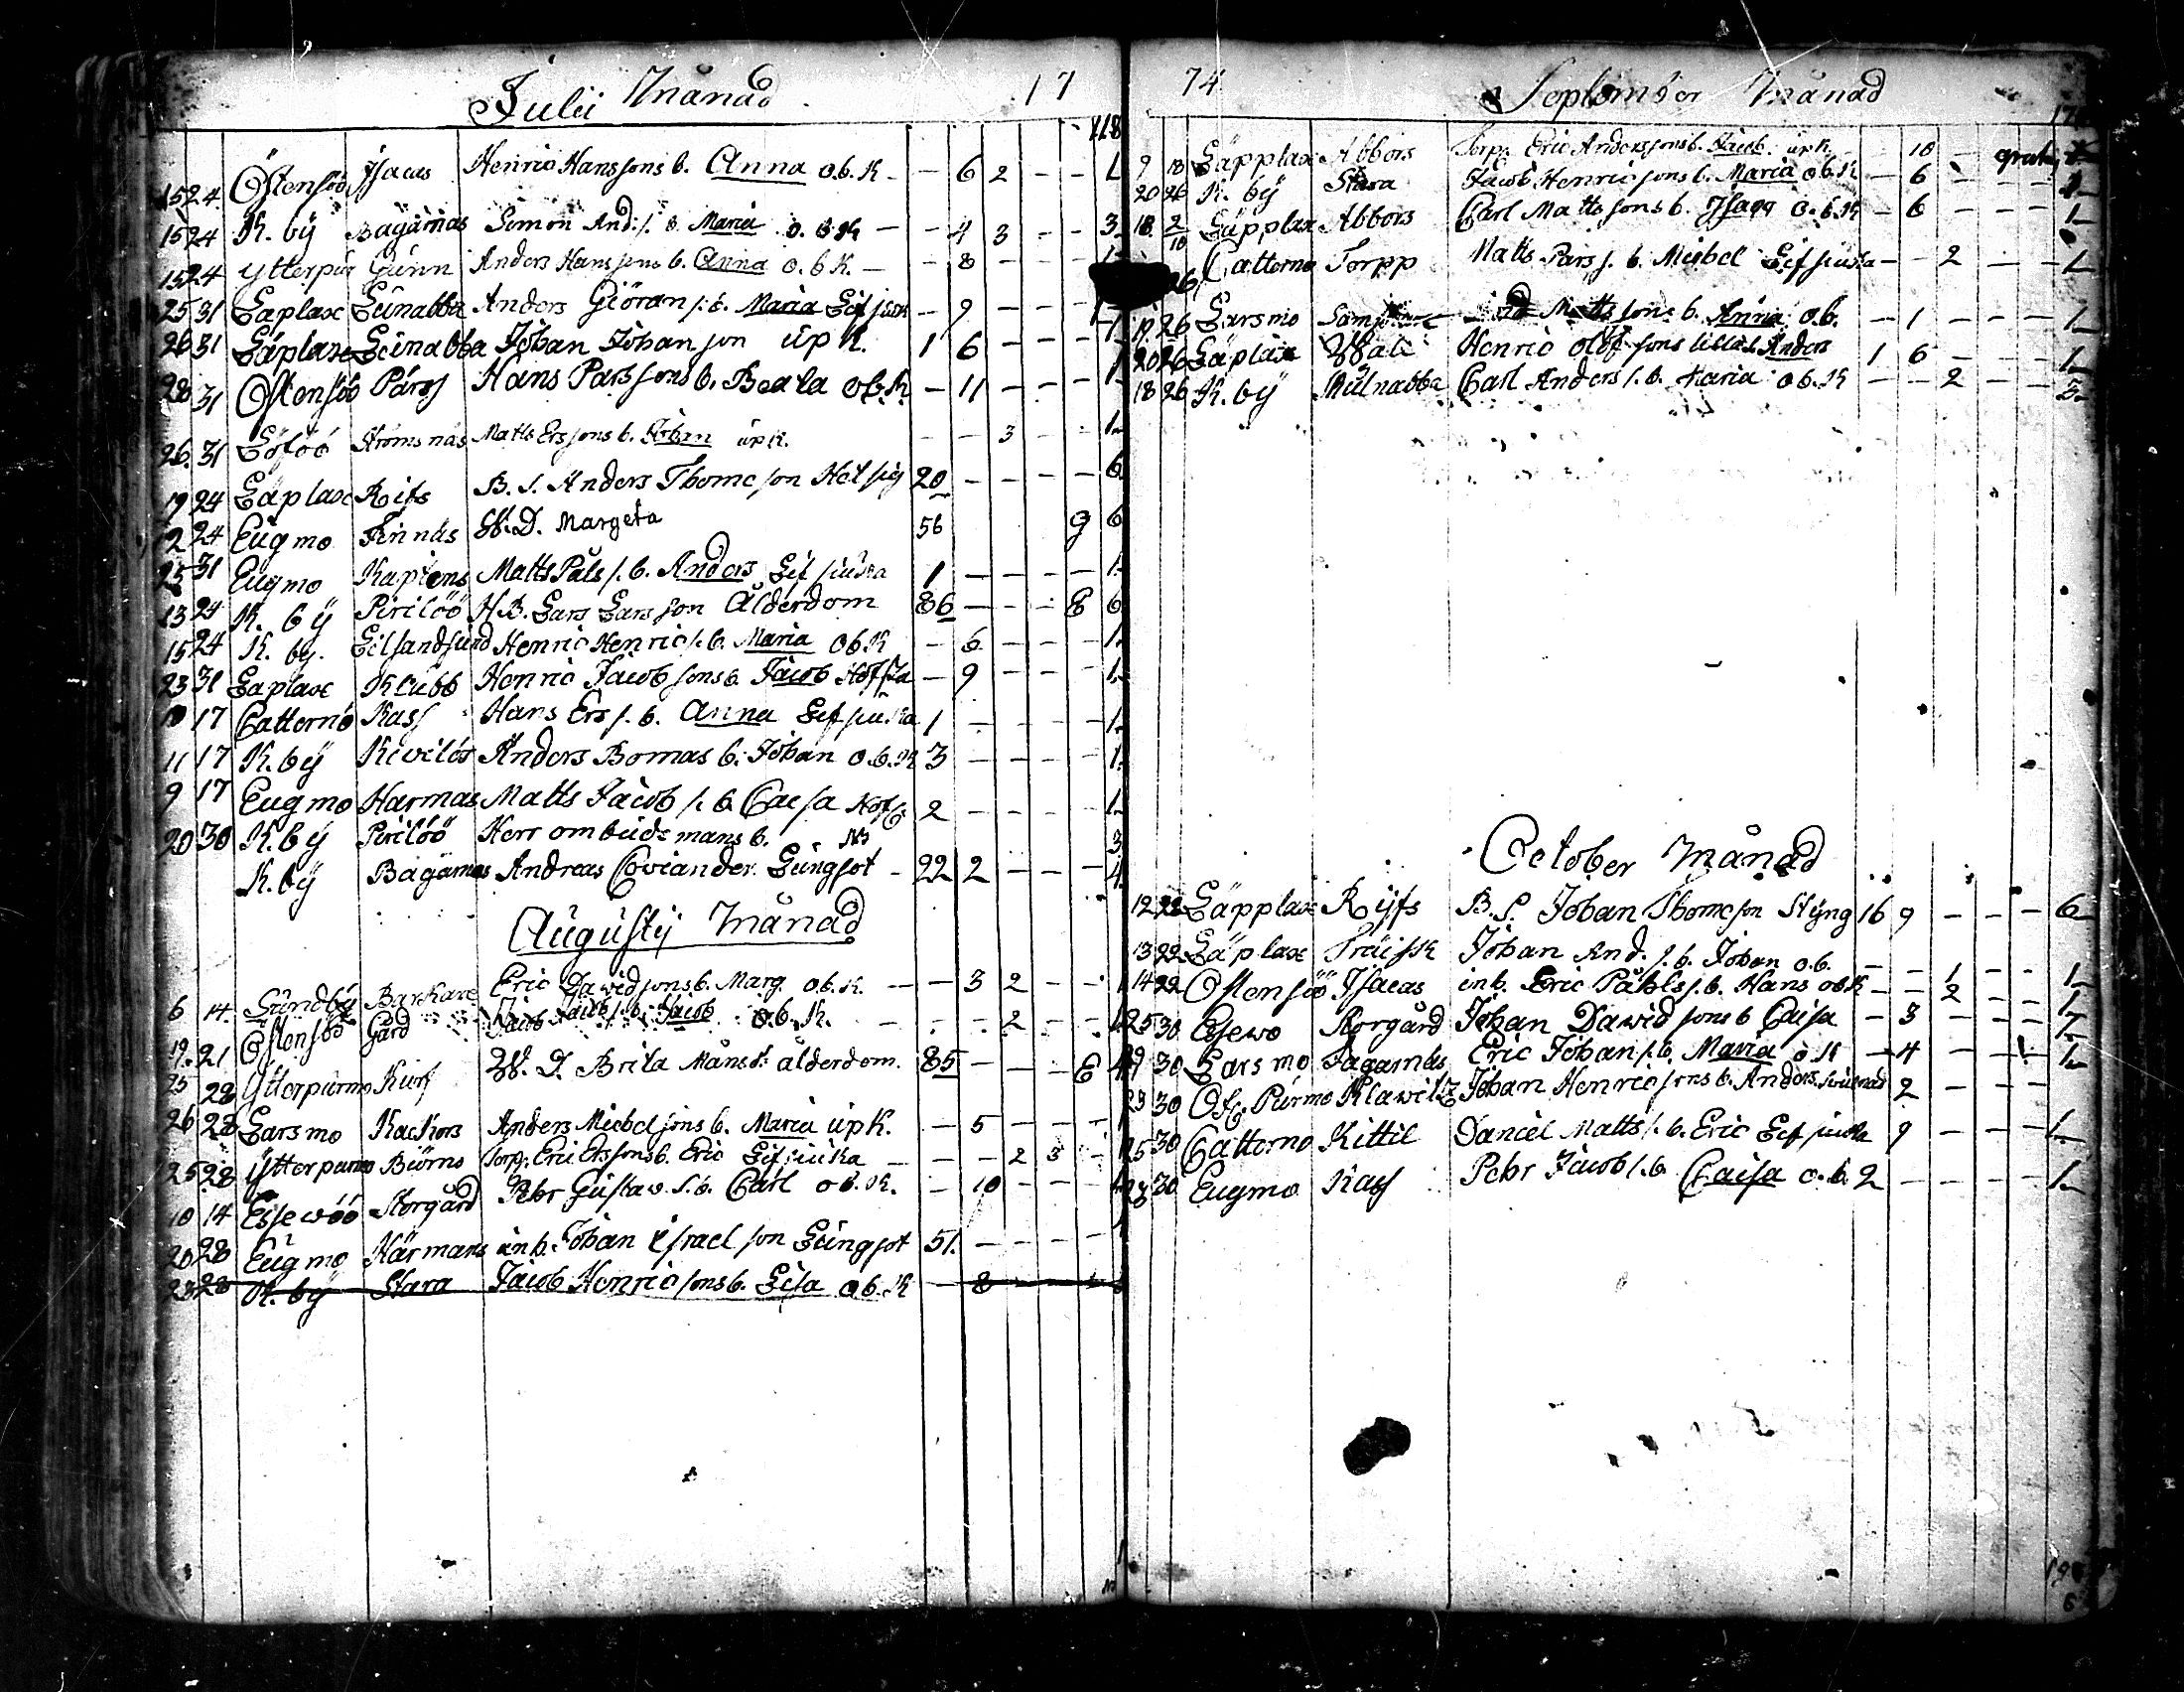 Julii Månad 17
118
15 24 Östensöö Jsacas Henric Hanssons b. Anna o.b.K - - 6 2 - - 1
15 24 K. bÿ Bagarnäs Simon And: s. b. Maria o.b.K - - 4 3 - - 3.
15 24 Ytterpur Gunn Anders Hanssons b. Anna o.b K. - - 8 - - 1
25 31 Läplax Lünabba Anders Giöran s. b. Maria Lif siuk - 9 - - - 1
26 31 Läplax Lünabba Johan Johanson up K. 1 6 - - - 1
28 31 Östensöö Pärss Hans Pärssons b. Beata ob.K. - 11 - - - 1
26. 31 Löföö Strömsnäs Matts Erssons b. Johan up K. - - 3 - - 1.
19 24 Läplax Reifs B. S. Anders Thomeson Hetsig 20 - - - - 6
2 24 Eugmo Finnäs W. D. Margeta 56 9 6
25 31 Eugmo Kaptens Matts Påls s. b. Anders Lif siuka 1 - - - - 1.
13 24 K. bÿ Pirilöö H.B. Lars Larsson Ålderdom 86 - - - E 6
15 24 K. by. Lillsandsund Henric Henric s. b. Maria obK - 6 - - - 1.
23 31 Laplax Klubb Henric Jacobsons b. Jacob Hosta - 9 - - - 1.
10 17 Catterno Kass Hans Ers s. b. Anna Lif siuka 1 - - - - 1.
11 17 K. bÿ Kivilös Anders Bomas b. Johan o.b.K 3 - - - - 1.
9 17 Eugmo Harmas Matts Jacob s. b. Caisa Host 2 - - - - 1.
20 30 K. bÿ Pirilöö Herr ombudsmans b. 3
K. bÿ Bagarnäs Andreas Coviander. Lungsot - 22 2 - - - 4.
Augustÿ Månad
6 14. Sundbÿ Barkare Eric Dawidsons b. Marg. ob.K. - - 3 2 - - 1
19. 21 Östensöö Gård Jacob Jacob s. b. Jacob o.b.K. - - - 2 - - 1
25 28 Ytterpurmo Kurf W. D. Brita Månsd: ålderdom. 85 - - - E 4
26 28 Larsmo Kackors Anders Michelsons b. Maria up K. - 5 - - -
25 28 Ytterpurmo Biörns Torp. Eric Erssons b. Eric Lif siuka - - 2 3 -
10 14 Essewöö Storgård Pehr Gustaw. S. b. Carl ob.K. - 10 - - - 1
20 28 Eugmo Härmans inh. Johan Israelson Lungsot 51. - - - - 1
23 28 K. bÿ Stara Jacob Henricsons b. Lisa ob.K - 8 - - -
74 September Månad
9 18 Läpplax Abbors Torp. Eric Anderssons b. Jacob. up K. - 10 - - gratis
20 26 K. bÿ Stara Jacob Henricsons b. Maria ob.K - 6 - - - 1
18. 2/10 Läpplax Abbors Carl Mattssons b. Jsaac o.b.K - 6 - - - 1
26 Catterno Torpp Matts Pärs s. b. Michel Lif siuka - - 2 - - 1
19 26 Larsmo Matts sons b. Anna o.b. - 1 - - - 1
20 26 Läplax Wali Henric Olofsons lilla b. Anders 1 6 - - - 1
18 26 K. bÿ Kulnabba Carl Anders s. b. Maria ob.K - - 2 - - 3.
October Månad
12 22 Läpplax Rÿfs B. S. Johan Thomeson Styng 16 9 - - - 6
13 22 Läplax Träisk Johan And. s. b. Johan o.b. - - 1 - - 1
14 22 Östensöö Jsacas inh. Eric Påhls s. b. Hans obK - - 2 - - 1
25 30 Essewö Storgård Johan Dawidsons b Caisa - 3 - - - 1
29 30 Larsmo Fagarnäs Eric Johan s. b. Maria o K - 4 - - - 1
23 30 Öf. Purmo Klawitz Johan Henricsons b. Anders 2 - - -
25 30 Catterno Kittil Daniel Matts s. b. Eric Lif siuka 9 - - - 1
28 30 Eugmo Kass Pehr Jacob s. b. Caisa o.b. 2 - - - - 1.